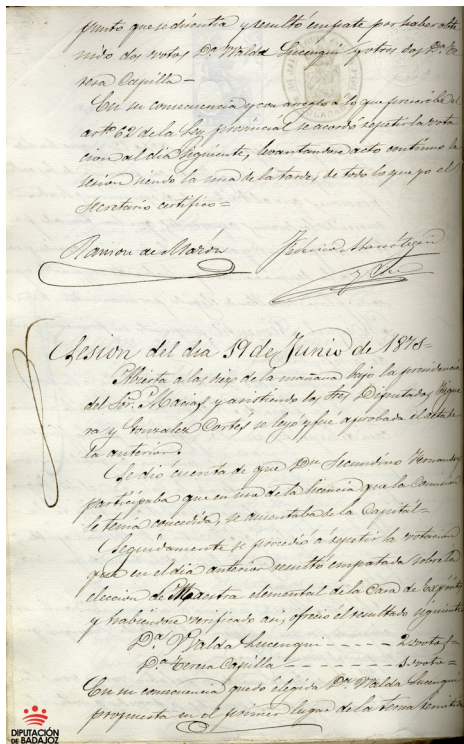 punto que se discutia y resultó empate por haber obte
nido dos votos Dª Walda Lucenqui y otros dos Dª Te
resa Capilla—
En su consecuencia y con arreglo a lo que prescribe el
artº 62 de la ley provincial se acordó repetir la vota
cion al dia siguiente, levantandose acto contínuo la
sesion siendo la una de la tarde, de todo lo que yo el
Secretario certifico=
Ramon de
Federico Abarrátegui
Sesion del dia 19 de Junio de 1878-
Abierta a las diez de la mañana bajo la presidencia
del Sor. Macias y asistiendo los Sres Diputados Higue
ra y Gonzalez Cortés se leyó y fué aprobada el acta de
la anterior.
Se dió cuenta de que Dn Secundino Fernandez
participaba que en uso de la licencia que la Comision
le tenia concedida, se ausentaba de la Capital-
Seguidamente se procedió a repetir la votacion
que en el dia anterior resultó empatada sobre la
eleccion de Maestra elemental de la Casa de Expósitos
y habiendose verificado asi, ofreció el resultado siguiente
Dª Walda Lucenqui - - - - - 2 votos-
Dª Teresa Capilla - - - - - 1. voto=
En su consecuencia quedó elegida Dª Walda Lucenqui
propuesta en el primer lugar de la terna remitida
DIPUTACIÓN
DE BADAJOZ